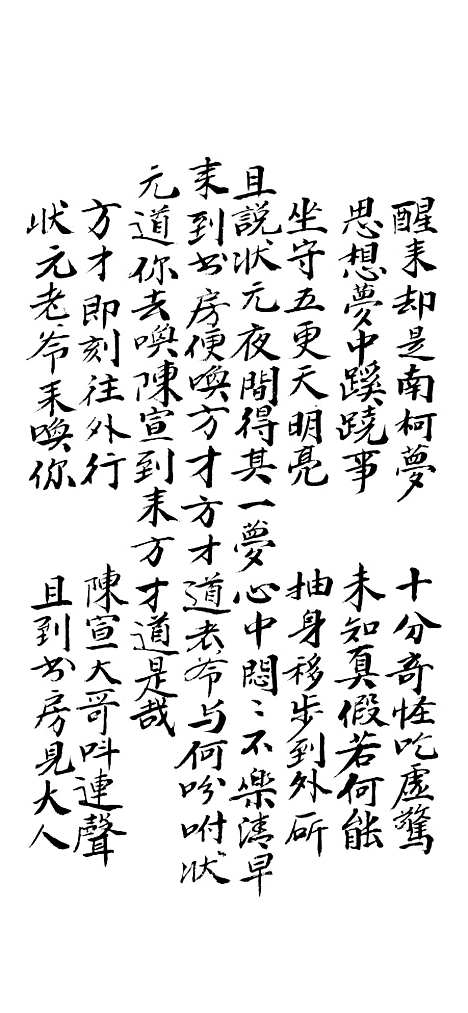 醒来却是南柯夢　十分奇怪吃虛驚
思想夢中蹊蹺事　未知真假若何能
坐守五更天明亮　抽身移步到外斫
且說状元夜間得其一夢心中悶〻不樂清早
来到书房便喚方才方才道老爷与何吩咐状
元道你去喚陳宣到来方才道是哉
方才即刻往外行　陳宣大哥呌連聲
状元老爷来喚你　且到书房見大人